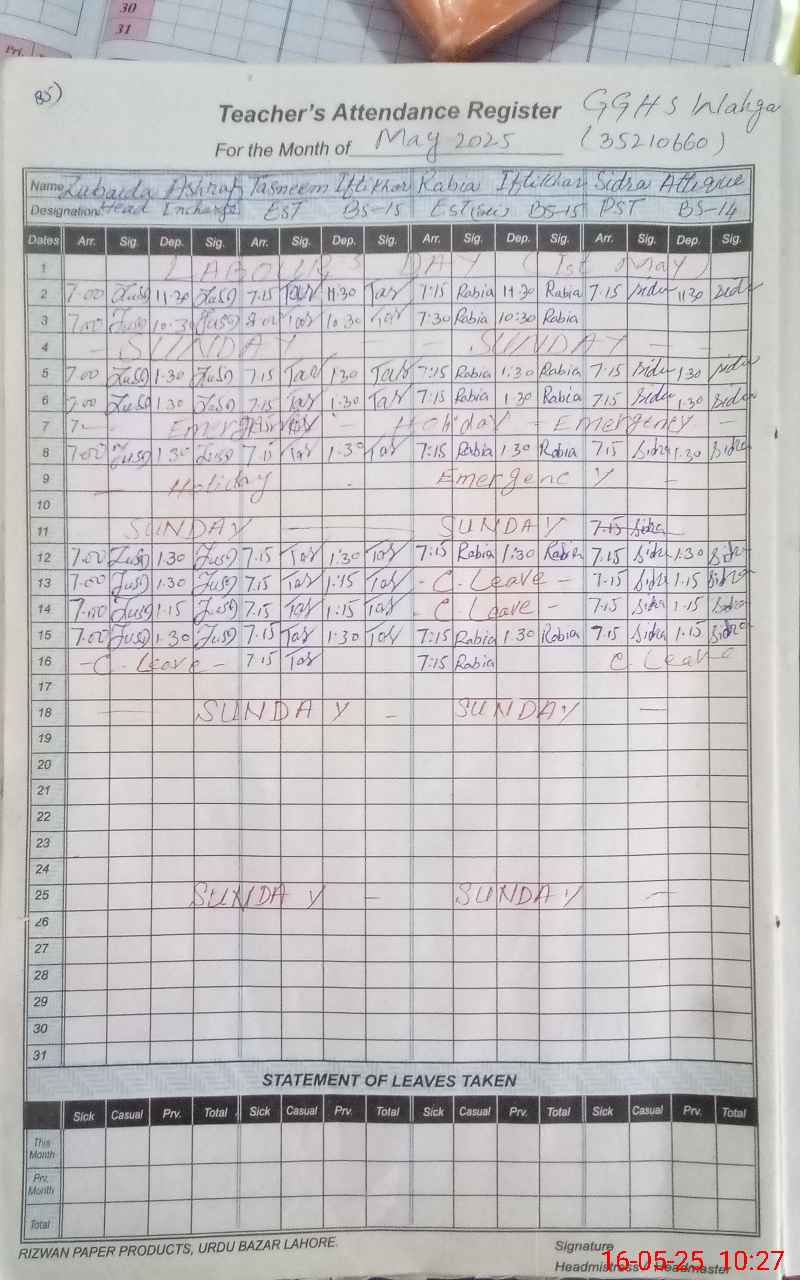 30
31
Pri.
85)
Teacher's Attendance Register GGHS Wahga
For the Month of May 2025 (35210660)
Name Zubaida Ashraf Tasneem Iftikhar Rabia Iftikhar Sidra Attique
Designation Head Incharge EST BS-15 EST(Sci) BS-15 PST BS-14
Dates Arr. Sig. Dep. Sig. Arr. Sig. Dep. Sig. Arr. Sig. Dep. Sig. Arr. Sig. Dep. Sig.
1 LABOUR'S DAY (1st May)
2 7.00 11.30 7.15 Tas 11:30 Tas 7:15 Rabia 11.30 Rabia 7.15 Sidra 11.30 Sidra
3 7.00 10.30 8.00 Tas 10.30 Tas 7:30 Rabia 10:30 Rabia
4 - SUNDAY - - SUNDAY - -
5 7.00 1.30 7.15 Tas 1.30 Tas 7:15 Rabia 1.30 Rabia 7.15 Sidra 1.30 Sidra
6 7.00 1.30 7.15 Tas 1.30 Tas 7.15 Rabia 1.30 Rabia 7.15 Sidra 1.30 Sidra
7 7- Emergency - Holiday - Emergency -
8 7.00 1.30 7.15 Tas 1.30 Tas 7:15 Rabia 1.30 Rabia 7.15 Sidra 1.30 Sidra
9 - Holiday - Emergency -
10
11 SUNDAY - SUNDAY 7.15 Sidra
12 7.00 1.30 7.15 Tas 1:30 Tas 7:15 Rabia 1:30 Rabia 7.15 Sidra 1.30 Sidra
13 7.00 1.30 7.15 Tas 1:15 Tas - C. Leave - 7.15 Sidra 1.15 Sidra
14 7.00 1.15 7.15 Tas 1:15 Tas - C. Leave - 7.15 Sidra 1.15 Sidra
15 7.00 1.30 7.15 Tas 1.30 Tas 7:15 Rabia 1.30 Rabia 7.15 Sidra 1.15 Sidra
16 - C. Leave - 7.15 Tas 7:15 Rabia C. Leave
17
18 - SUNDAY - SUNDAY -
19
20
21
22
23
24
25 SUNDAY - SUNDAY -
26
27
28
29
30
31
STATEMENT OF LEAVES TAKEN
Sick Casual Prv. Total Sick Casual Prv. Total Sick Casual Prv. Total Sick Casual Prv. Total
This Month
Prv. Month
Total
RIZWAN PAPER PRODUCTS, URDU BAZAR LAHORE.
Signature
Headmistress / Headmaster
16-05-25 10:27